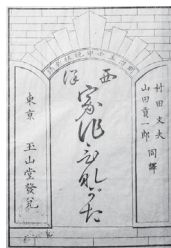 村田文夫
山田貢一郎 同譯
西洋
家作ひながた
東京 玉山堂發兌